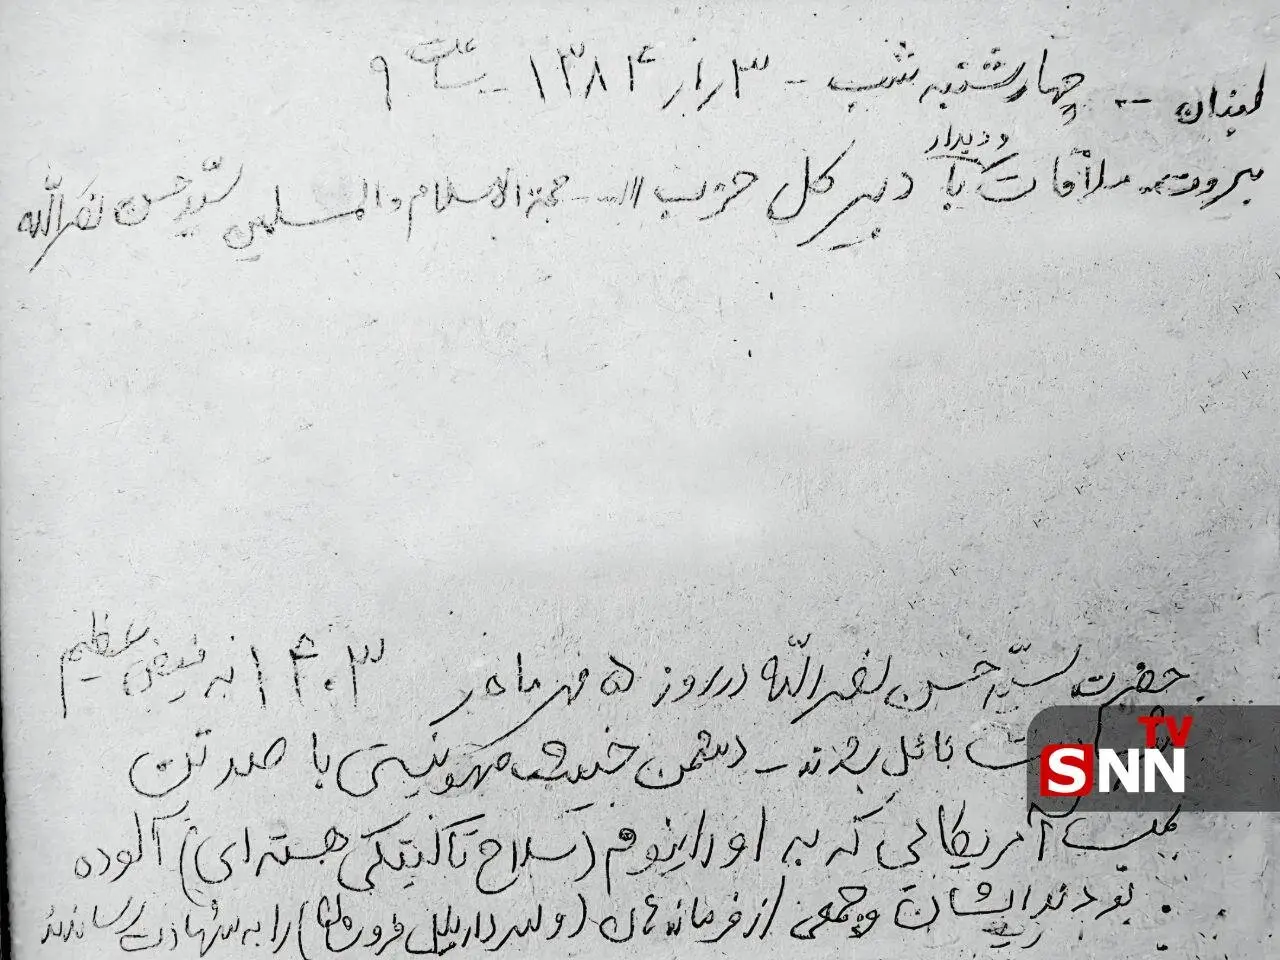 لبنان -- چهارشنبه شب - ۱۳۸۴/۱/۳ - ساعت ۹
بیروت ملاقات و دیدار با دبیر کل حزب الله - حجة الاسلام والمسلمین سیّد حسن نصرالله
حضرت سیّد حسن نصرالله در روز ۵ مهر ماه ۱۴۰۳ به فیض عظیم
نائل شدند - دشمن خبیث صهونیستی با صد تن
بمب آمریکائی که به اورانیوم (سلاح تاکتیکی هسته ای) آلوده
بودند ایشان و جمعی از فرماندهان (و سردار نیل فروشان) را به شهادت رساندند
SNN TV